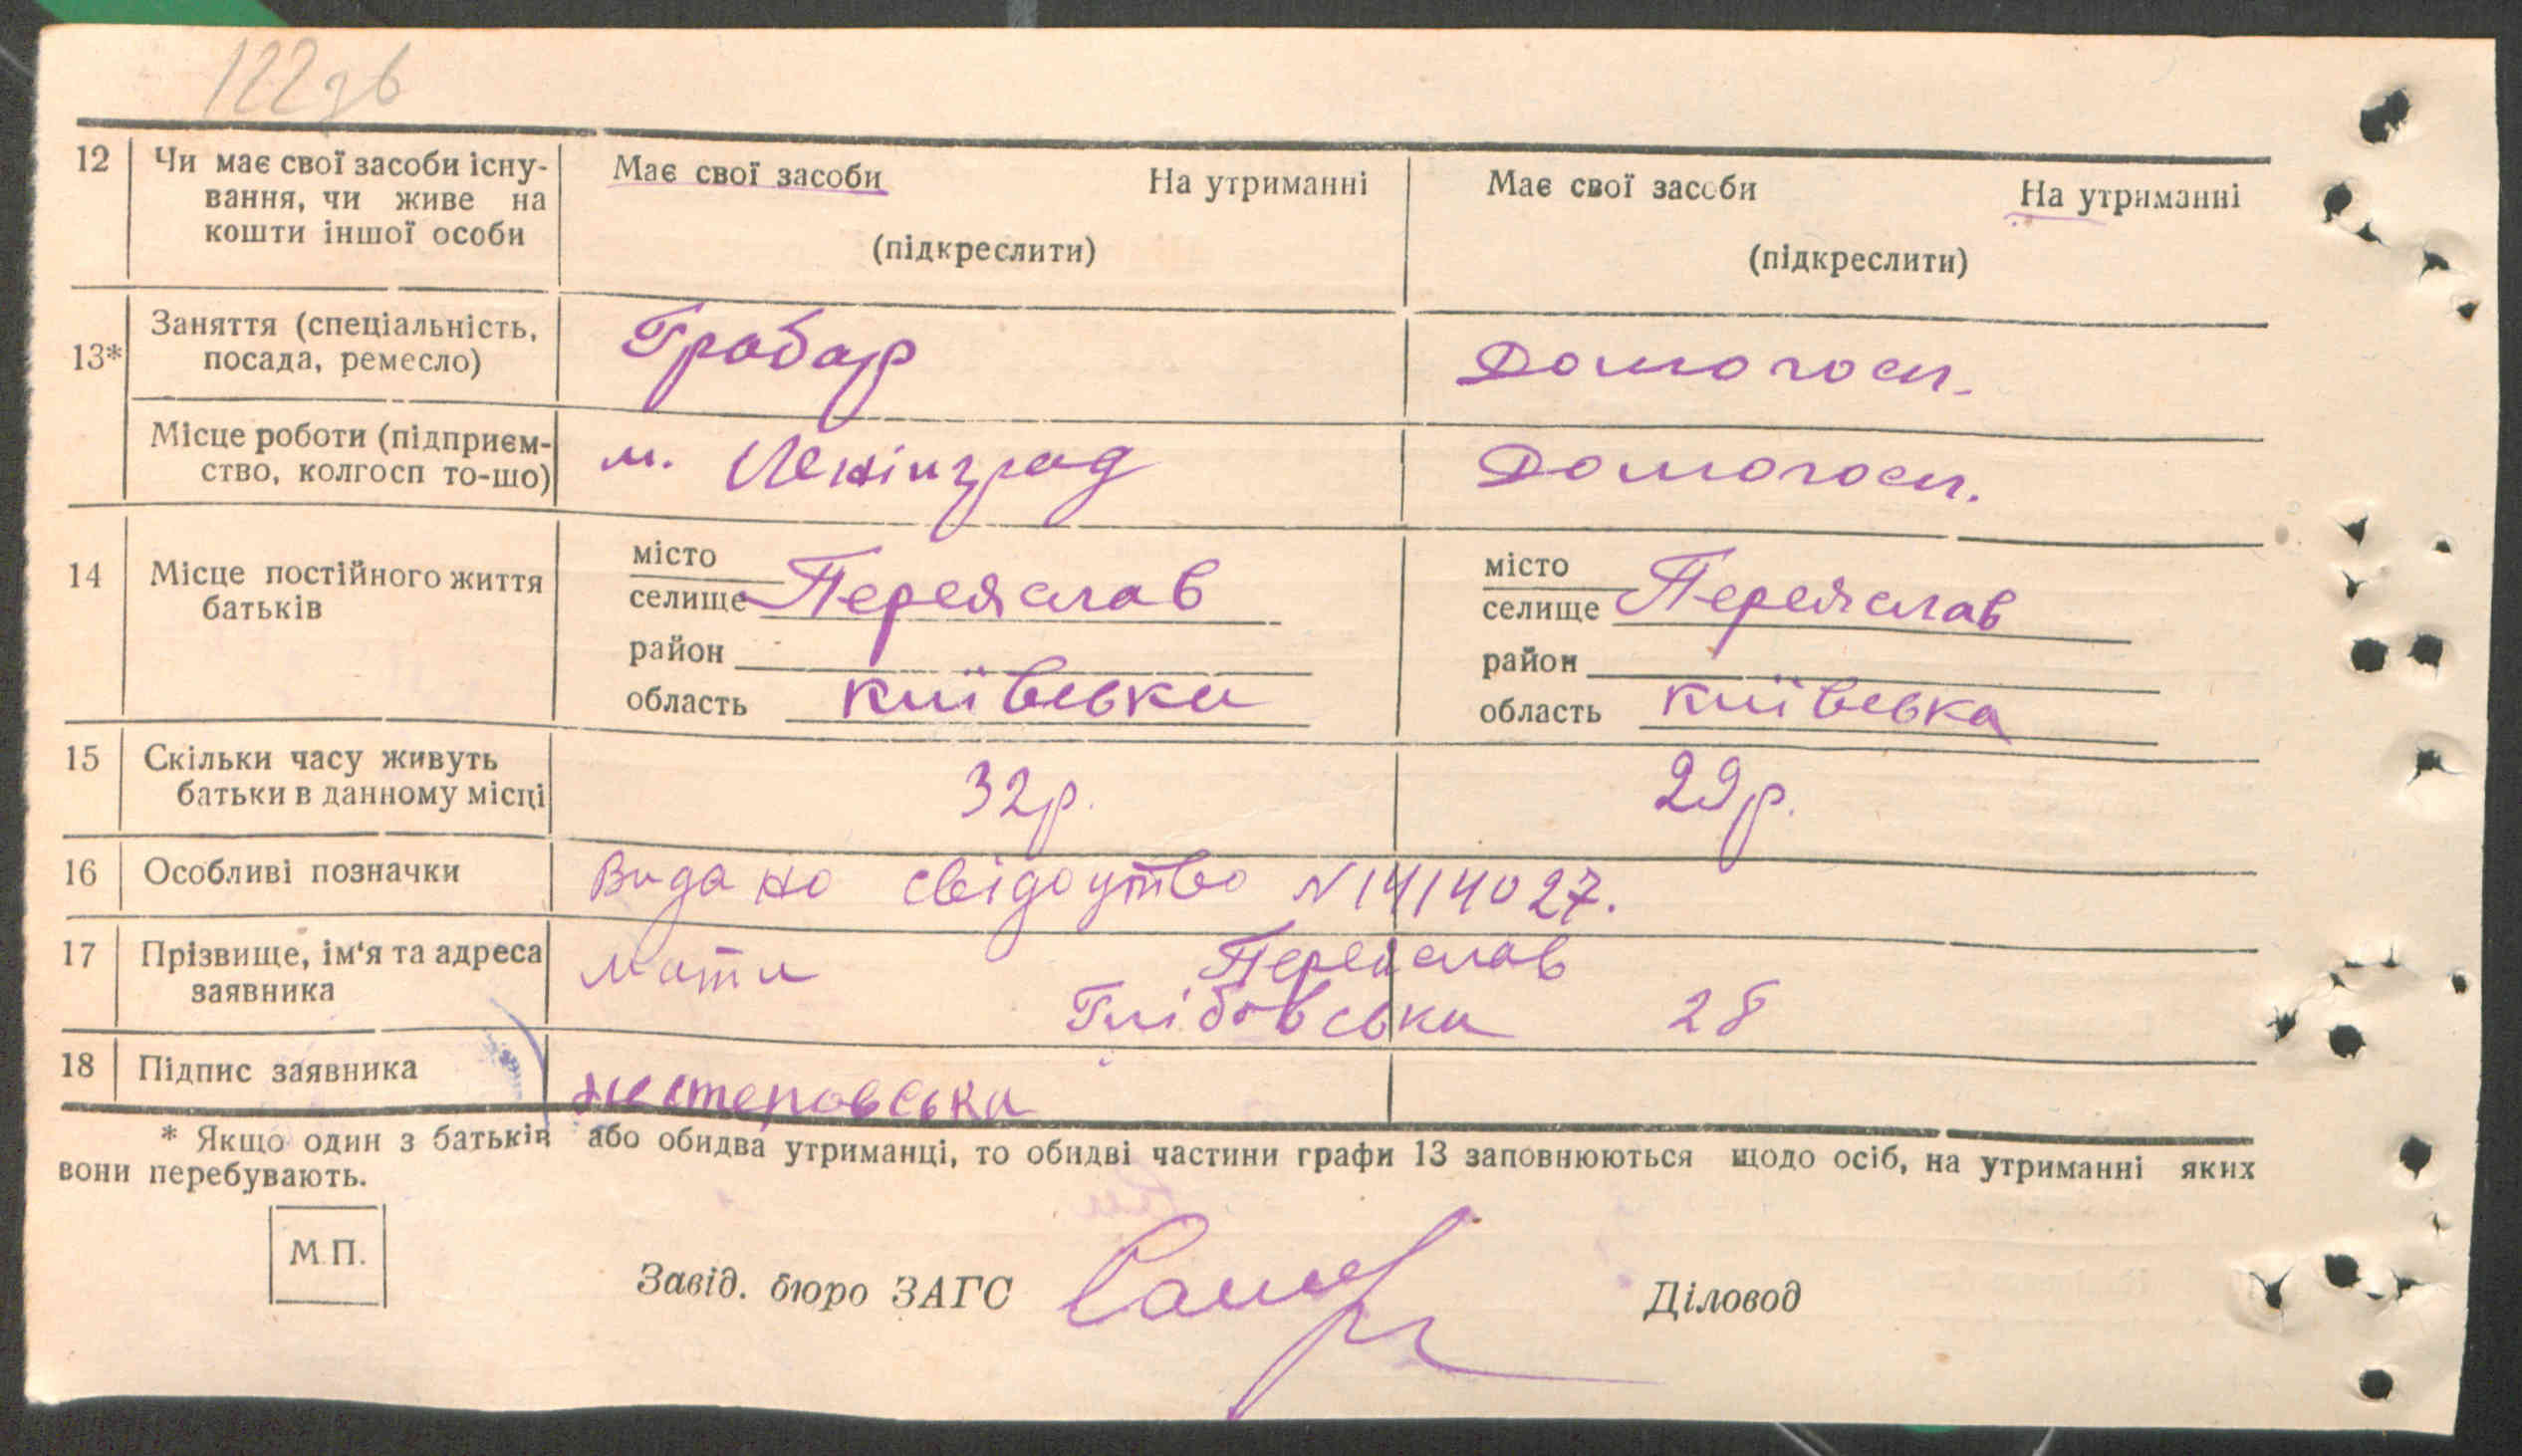 122зв
12 Чи має свої засоби існу- Має свої засоби На утриманні Має свої засоби На утриманні
вання, чи живе на
кошти іншої особи (підкреслити) (підкреслити)
13* Заняття (спеціальність, Грабар Домогосп.
посада, ремесло)
Місце роботи (підприєм- м. Ленінград Домогосп.
ство, колгосп то-що)
14 Місце постійного життя місто Переяслав місто Переяслав
батьків селище селище
район район
область київська область київська
15 Скільки часу живуть 32р. 29р.
батьки в данному місці
16 Особливі позначки Видано свідоцтво N1414027.
17 Прізвище, ім'я та адреса Мати Переяслав
заявника Глібовська 28
18 Підпис заявника нестеровська
* Якщо один з батьків або обидва утриманці, то обидві частини графи 13 заповнюються щодо осіб, на утриманні яких
вони перебувають.
М.П.
Завід. бюро ЗАГС Діловод